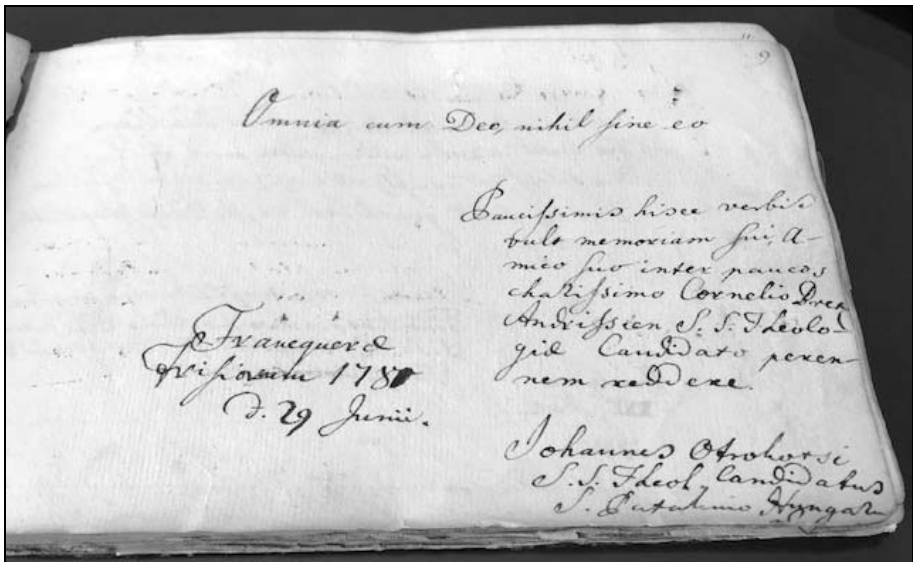 9
Omnia cum Deo, nihil sine eo
Paucissimis hisce verbis
vult memoriam sui, A-
mico suo inter paucos
charissimo Cornelio Dree
Andrissien, S. S. Theolo-
giæ Candidato peren-
nem reddere.
Franequeræ
Frisiorum 1780
d. 29 Junii.
Johannes Otrokotsi
S. S. Theol. Candidatus
S. Patakino Hungarus